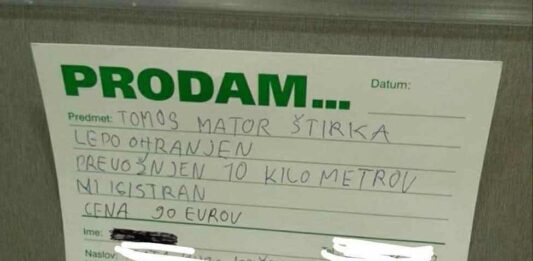 PRODAM...
Datum:
Predmet: TOMOS MATOR ŠTIRKA
LEPO OHRANJEN
PREVOŠNJEN 10 KILO METROV
NI IGISTRAN
CENA 90 EUROV
Ime:
Naslov: